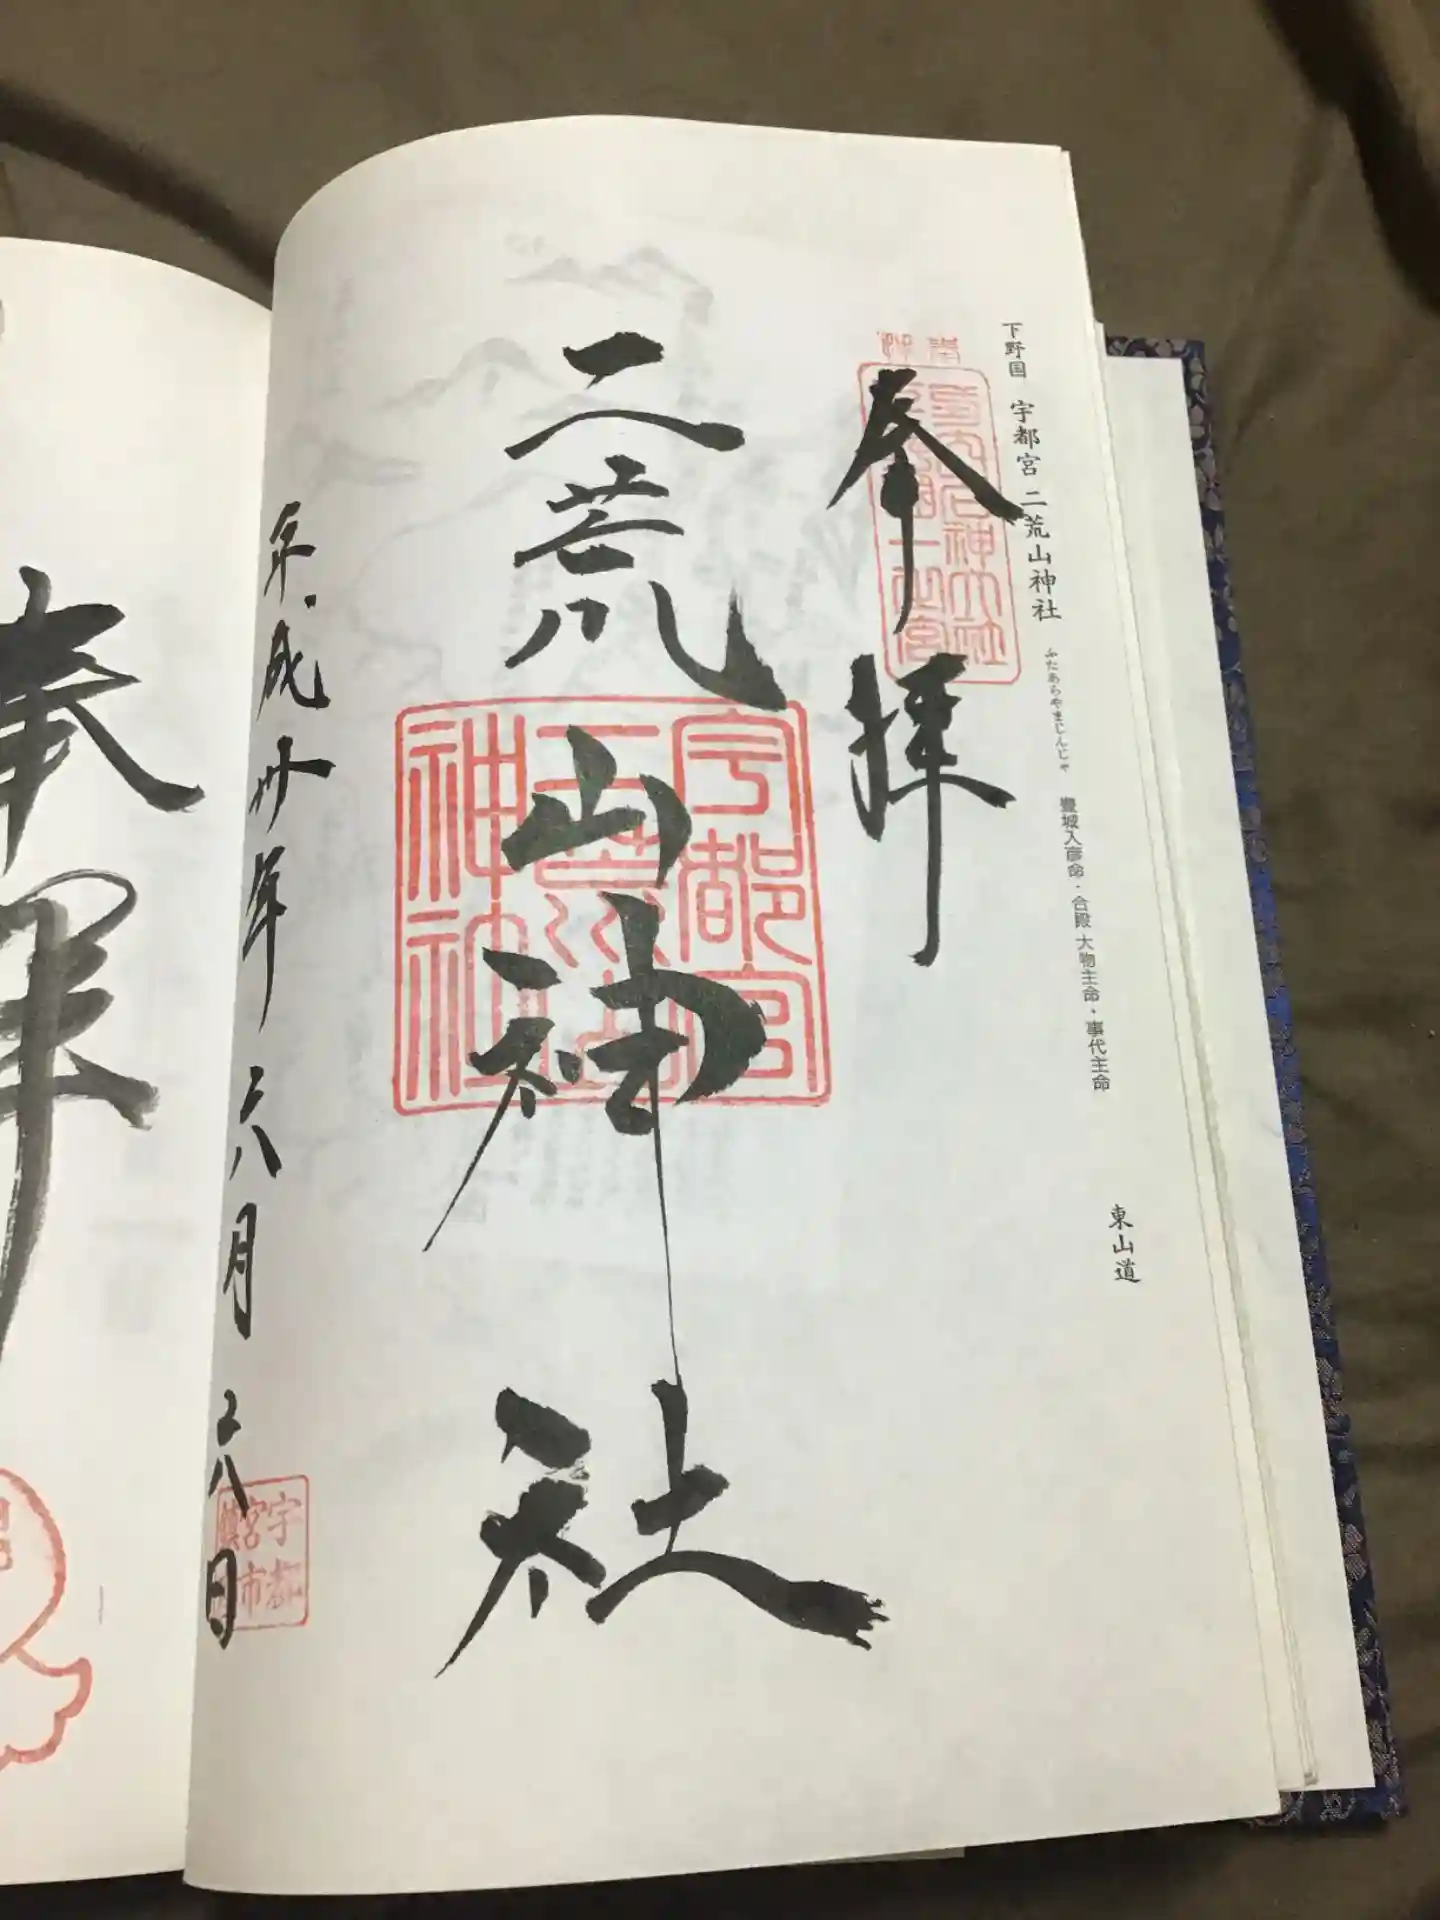 下野国 宇都宮 二荒山神社 ふたあらやまじんじゃ 豊城入彦命・合殿 大物主命・事代主命 東山道
奉拝
二荒山神社
宇都宮
二荒山
神社
平成卅年六月六日
宇都
宮市
鎮
奉拝